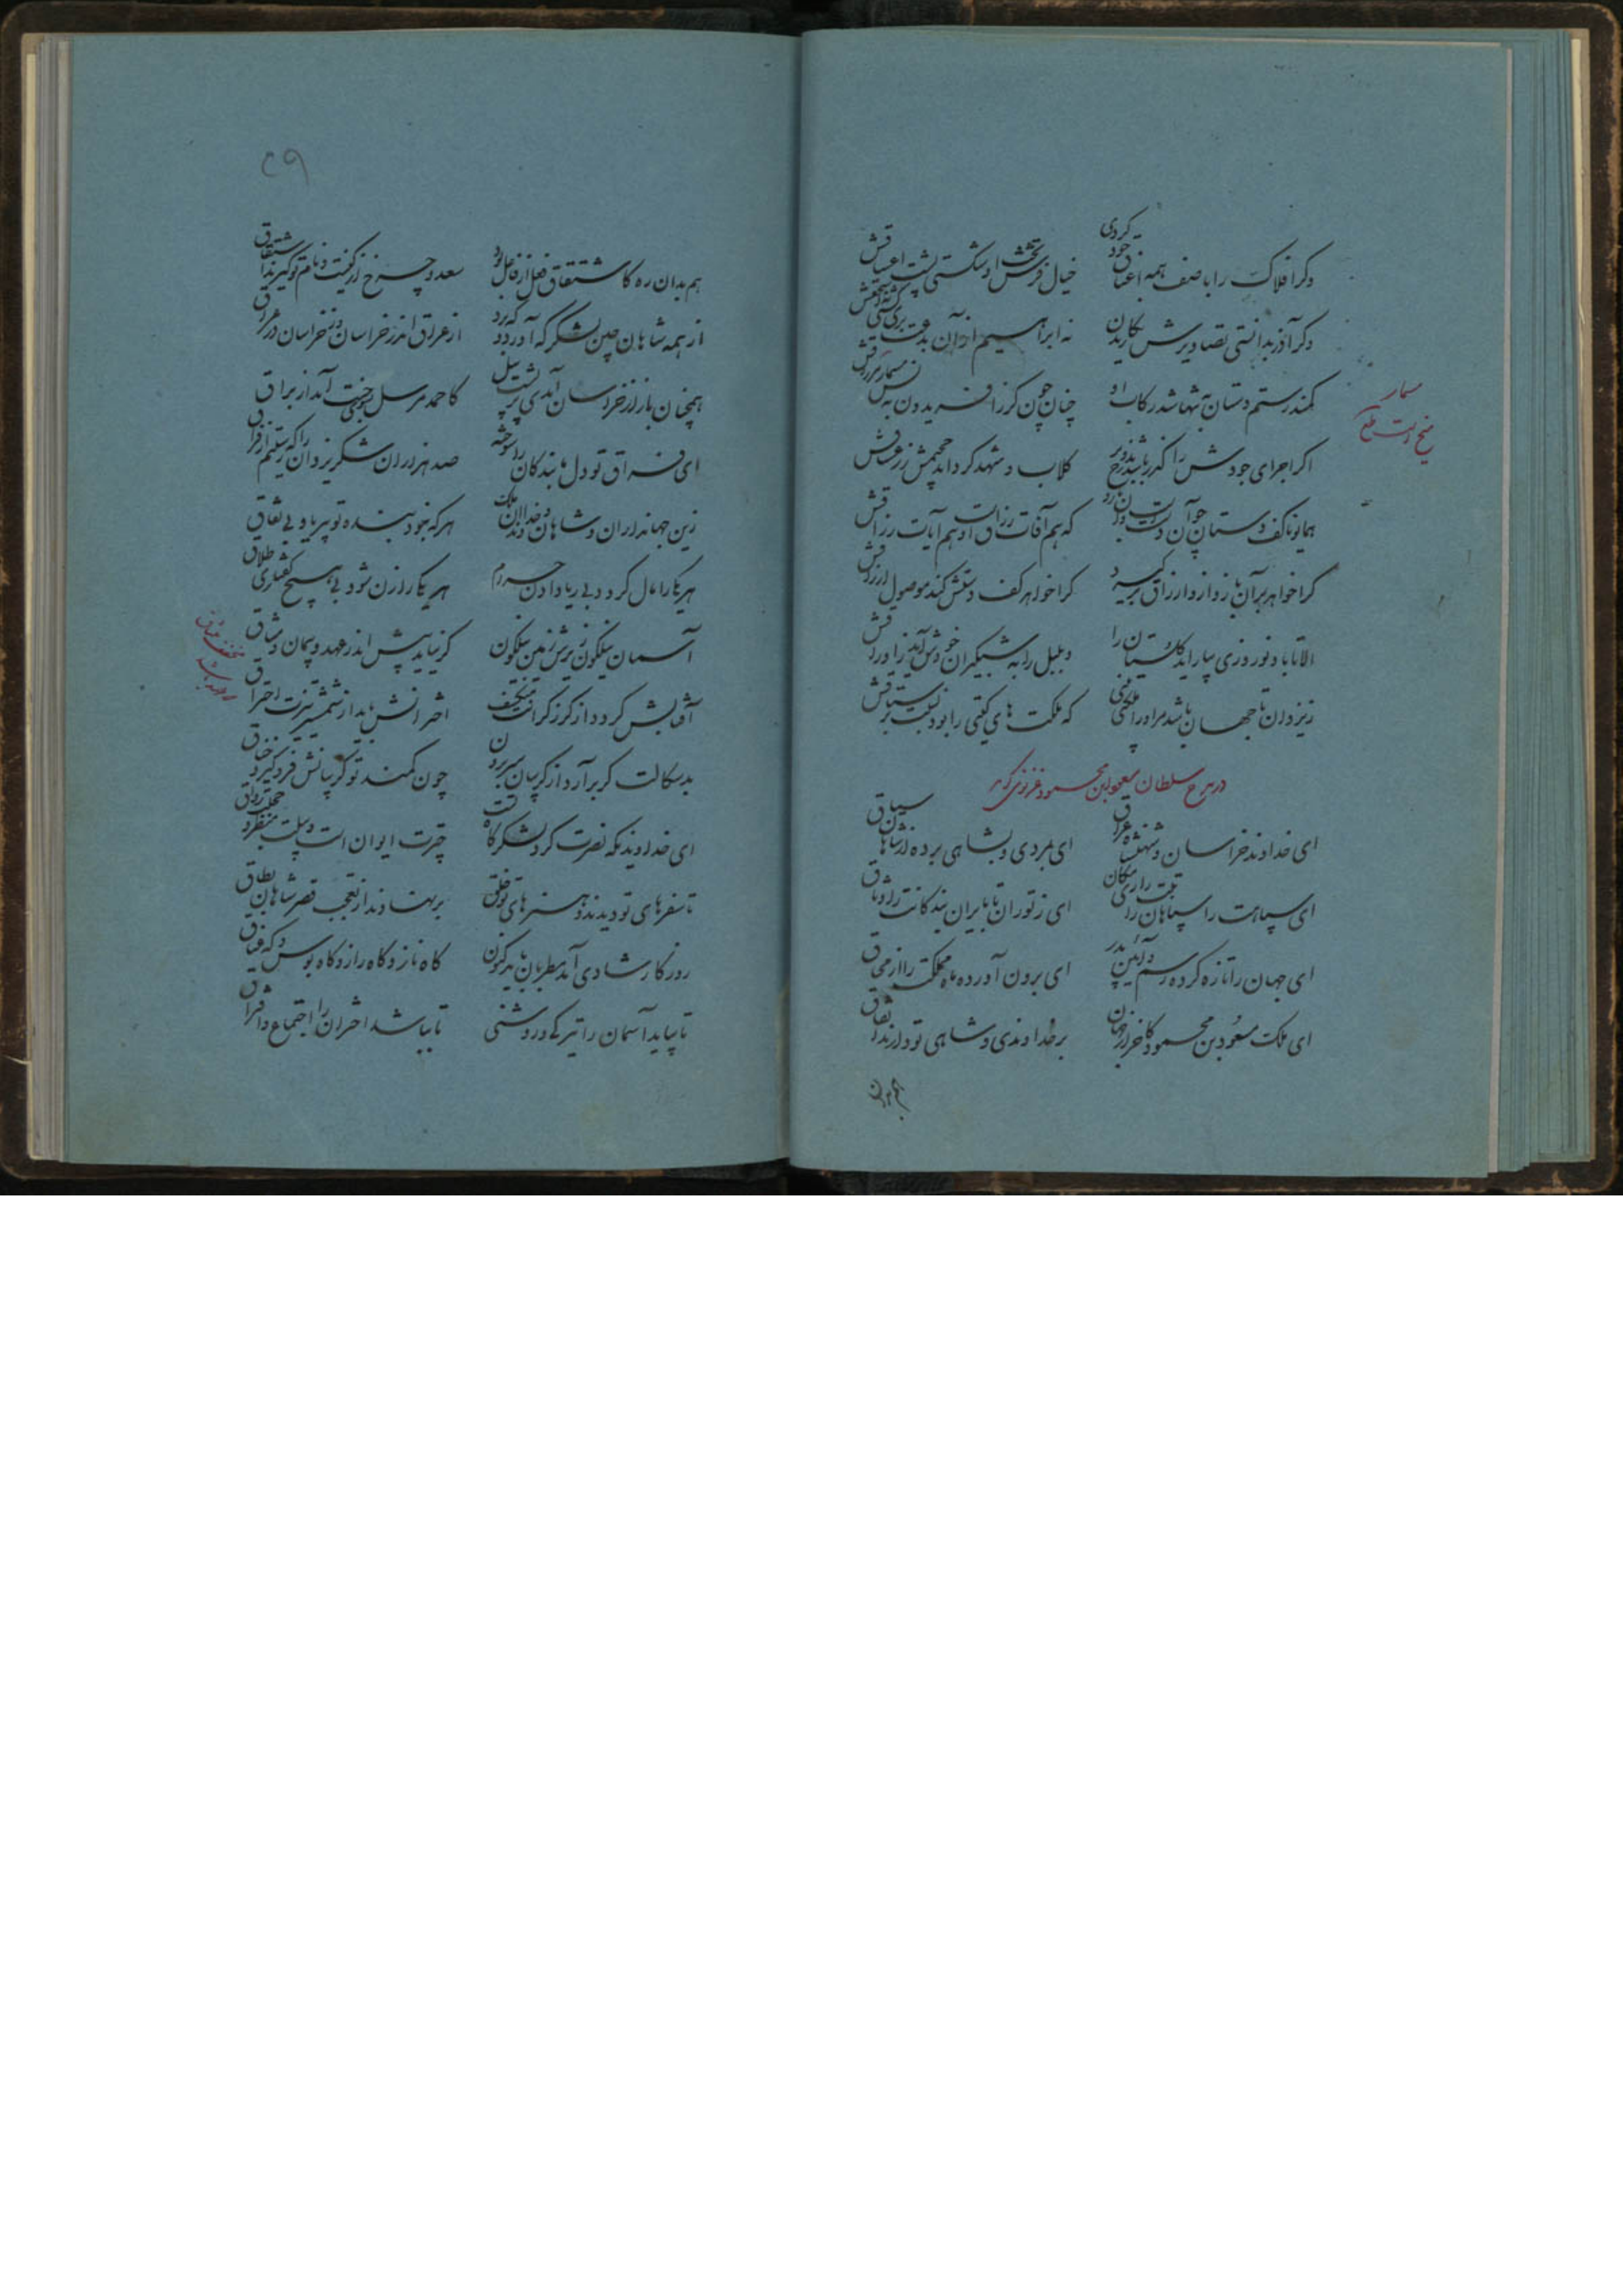 وگر افلاک را با صف همه اعناق خود کردی خیال فرش تختش او شکستی پشت اعناقش
وگر آذر بدانستی تصاویرش نگاریدن نه ابراهیم از آن بدعت بری گشتی نه اسحاقش
کمند رستم دستان نه بس باشد رکاب او چنان چون گرز افریدون نه بس مسمار مزراقش
مسمار
میخ است
اگر اجزای جودش را گذر باشد به دوزخ بر گلاب و شهد گرداند حمیمش را و غساقش
همانا کف دستان چون آن را دست و آن زد که هم آفات زراق است و هم آیات رزاقش
گر خواهد بر آن بازو از ارزاق کرا خواهد کف دستش کند موصول ارزاقش
الا تا باد نوروزی بیاراید گلستان را و بلبل را به شبگیران خوش آید نزد اوراقش
ز یزدان تا جهان باشد مر او را ملک که ملکت های گیتی را بود نسبت به رستاقش
در مدح سلطان مسعود ابن محمود غزنوی گوید
ای خداوند خراسان و شهنشاه عراق ای بمردی و بشاهی برده از شاهان سباق
ای سپاهت را سپاهان رایتت را ری مکان ای ز توران تا بایران بندگانت را وثاق
ای جهان را تازه کرده رسم و آئین پدر ای برون آورده ماه مملکت را از محاق
ای ملک مسعود بن محمود کاحرار جهان بر خداوندی و شاهی تو دارند اتفاق
هم بدان
۲۹
هم بدان ره کاشتقاق فعل از فاعل بود سعد و چرخ از کنیت و نام تو گیرند اشتقاق
از همه شاهان چنین لشکر که آورد و که برد از عراق اندر خراسان وز خراسان در عراق
همچنان باز از خراسان آمدی بر پشت پیل کاحمد مرسل بسوی جنت آمد از براق
ای فراق تو دل ما بندگان را سوخته صد هزاران شکر یزدان را که رستیم از فراق
زین جهانداران و شاهان و خداوندان ملک هر که نبود بنده تو بیریا و بی نفاق
هر یکی را مال گردد بی ریا دادن حرام هر یکی را زن شود بی هیچ گفتاری طلاق
آسمان نیلگون زیرش زمین نیلگون گر نیاید پیش اندر عهد و پیمان وشاق
آفتابش گردد از گرز گرانت منکسف اخترانش یابد از شمشیر تیزت احتراق
بدسکالت گر برآرد از گریبان سر برون چون کمند تو گریبانش فرو گیرد خناق
ای خداوندیکه نصرت گرد لشکرگاه تست چترت ایوان است و پیلت منظر و حجلت رواق
تا سفرهای تو دیدند و هنرهای تو خلق بر نهادند از تعجب قصر شاهان بطاق
روزگار شادی آمد مطربان باید کنون گاه ناز و گاه راز و گاه بوس و گه عناق
تا بیاید آسمان را تیرگی و روشنی تا بباشد اختران را اجتماع و افتراق